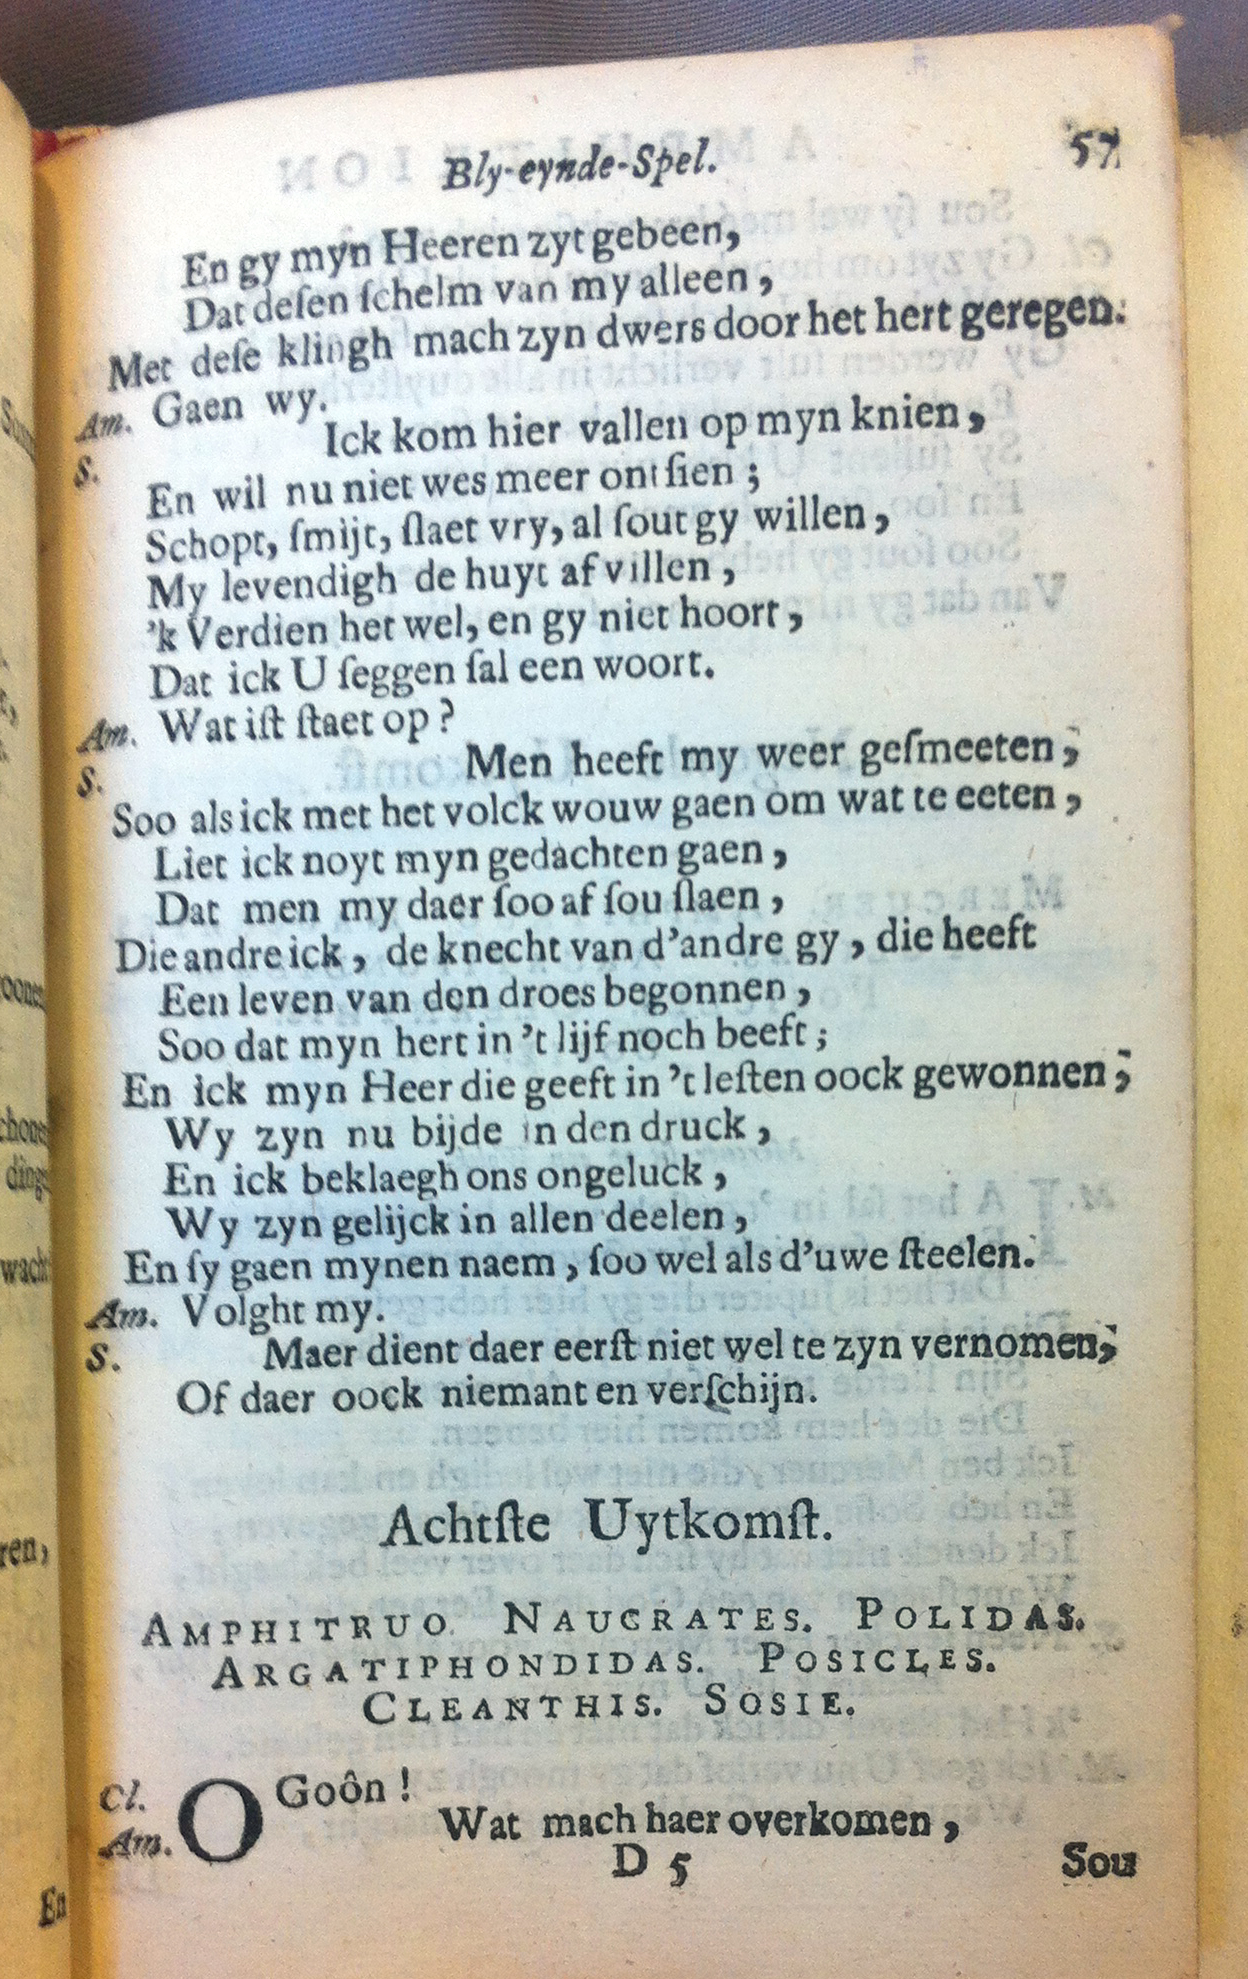 Bly-eynde-Spel. 57
En gy myn Heeren zyt gebeen,
Dat deſen ſchelm van my alleen,
Met deſe klingh mach zyn dwers door het hert geregen.
Am. Gaen wy.
S. Ick kom hier vallen op myn knien,
En wil nu niet wes meer ontſien;
Schopt, ſmijt, ſlaet vry, al ſout gy willen,
My levendigh de huyt af villen,
'k Verdien het wel, en gy niet hoort,
Dat ick U ſeggen ſal een woort.
Am. Wat iſt ſtaet op?
S. Men heeft my weer geſmeeten,
Soo als ick met het volck wouw gaen om wat te eeten,
Liet ick noyt myn gedachten gaen,
Dat men my daer ſoo af ſou ſlaen,
Die andre ick, de knecht van d'andre gy, die heeft
Een leven van den droes begonnen,
Soo dat myn hert in 't lijf noch beeft;
En ick myn Heer die geeft in 't leſten oock gewonnen;
Wy zyn nu bijde in den druck,
En ick beklaegh ons ongeluck,
Wy zyn gelijck in allen deelen,
En ſy gaen mynen naem, ſoo wel als d'uwe ſteelen.
Am. Volght my.
S. Maer dient daer eerſt niet wel te zyn vernomen,
Of daer oock niemant en verſchijn.
Achtſte Uytkomſt.
AMPHITRUO. NAUCRATES. POLIDAS.
ARGATIPHONDIDAS. POSICLES.
CLEANTHIS. SOSIE.
Cl. O Goôn!
Am. Wat mach haer overkomen,
D 5 Sou